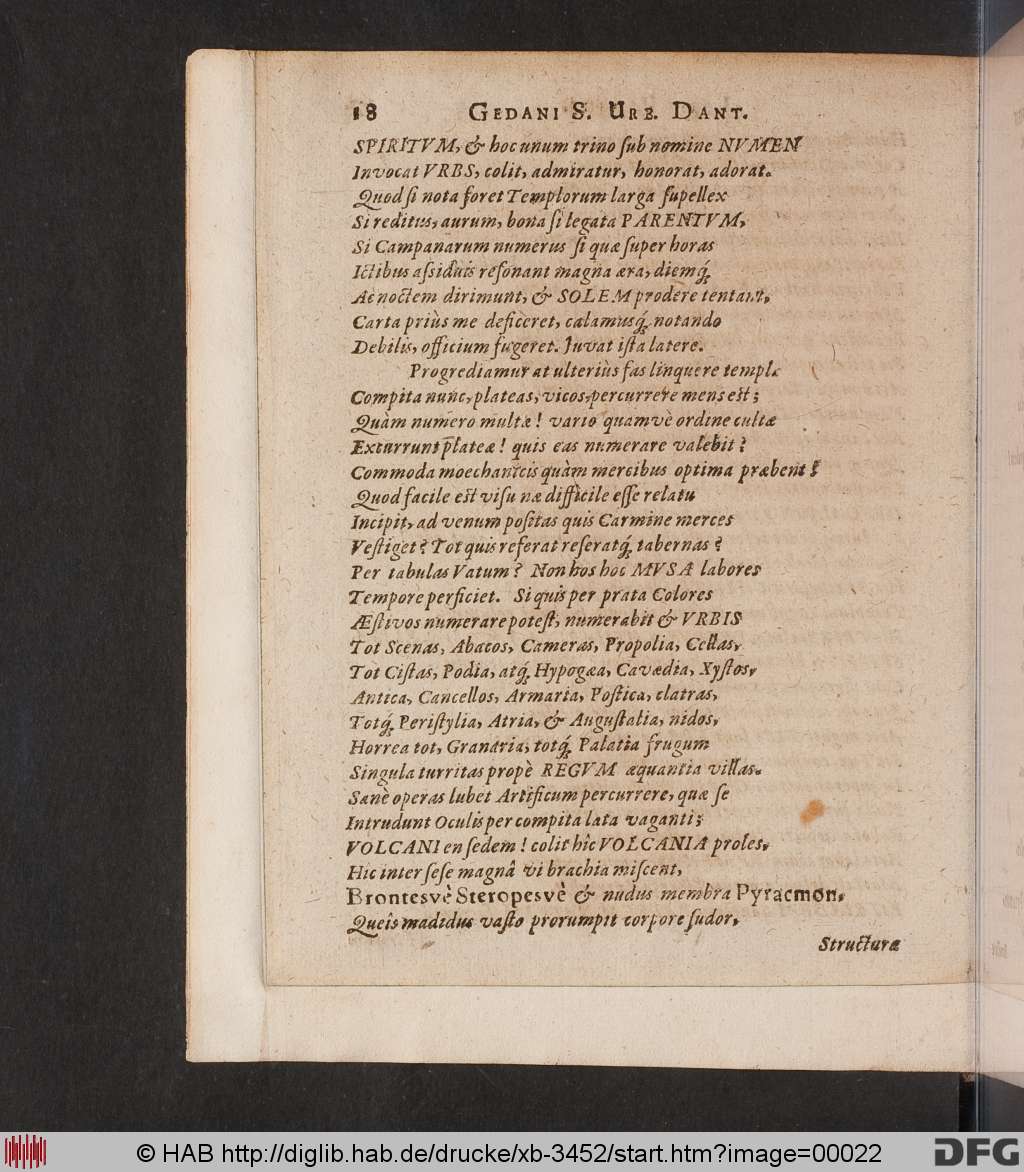 18 GEDANI S. URB. DANT.
SPIRITVM, & hoc unum trino ſub nomine NVMEN
Invocat VRBS, colit, admiratur, honorat, adorat.
Quod ſi nota foret Templorum larga ſupellex
Si reditus, aurum, bona ſi legata PARENTVM,
Si Campanarum numerus ſi quæ ſuper horas
Ictibus aſsiduis reſonant magna æra, diemq́;
Ac noctem dirimunt, & SOLEM prodere tentant,
Carta priùs me deficeret, calamusq́; notando
Debilis, officium fugeret. Iuvat iſta latere.
Progrediamur at ulteriùs fas linquere templa
Compita nunc, plateas, vicos, percurrere mens eſt;
Quàm numero multæ! vario quamvè ordine cultæ
Excurrunt plateæ! quis eas numerare valebit?
Commoda moechanicis quàm mercibus optima præbent!
Quod facile eſt viſu næ difficile eſſe relatu
Incipit, ad venum poſitas quis Carmine merces
Veſtiget? Tot quis referat reſeratq́; tabernas?
Per tabulas Vatum? Non hos hoc MVSA labores
Tempore perficiet. Si quis per prata Colores
Æſtivos numerare poteſt, numerabit & VRBIS
Tot Scenas, Abacos, Cameras, Propolia, Cellas,
Tot Ciſtas, Podia, atq́; Hypogæa, Cavædia, Xyſtos,
Antica, Cancellos, Armaria, Poſtica, clatras,
Totq́; Periſtylia, Atria, & Auguſtalia, nidos,
Horrea tot, Granaria, totq́; Palatia frugum
Singula turritas propè REGVM æquantia villas.
Sanè operas lubet Artificum percurrere, quæ ſe
Intrudunt Oculis per compita lata vaganti;
VOLCANI en ſedem! colit hîc VOLCANIA proles,
Hic inter ſeſe magnâ vi brachia miſcent,
Brontesvè Steropesvè & nudus membra Pyracmon,
Queîs madidus vaſto prorumpit corpore ſudor,
Structuræ
© HAB http://diglib.hab.de/drucke/xb-3452/start.htm?image=00022
DFG